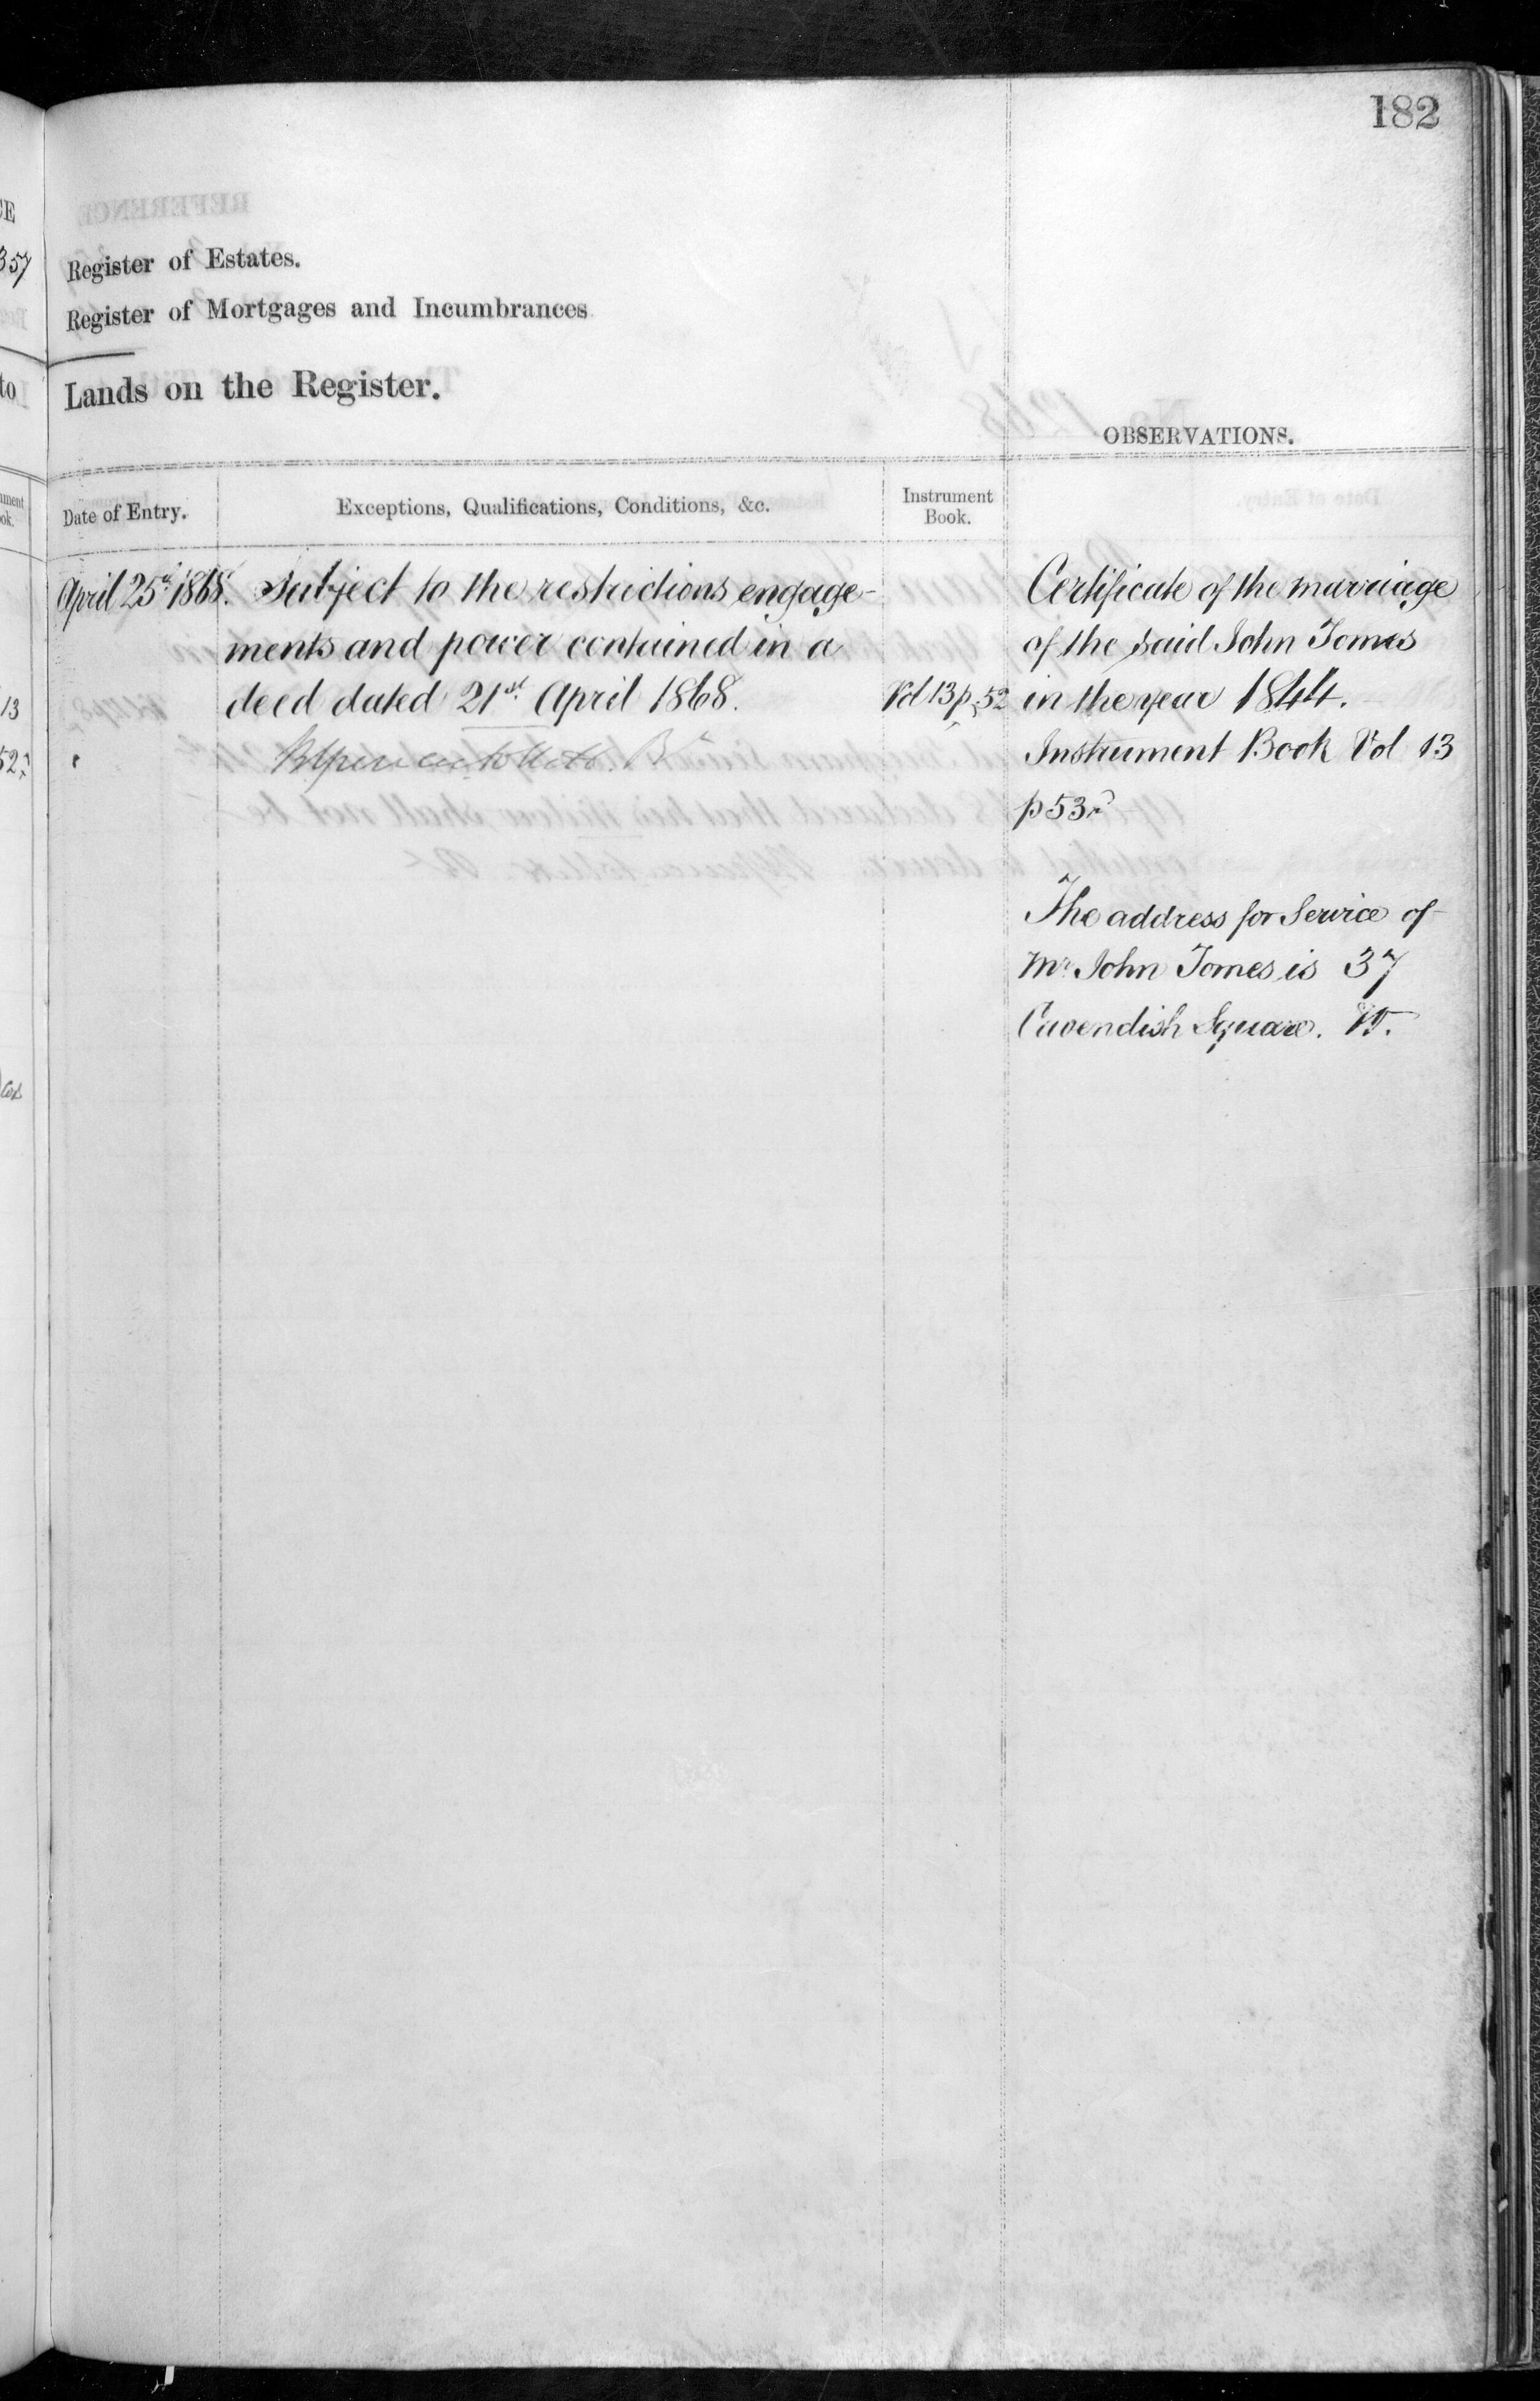 182
Register of Estates.
Register of Mortgages and Incumbrances
Lands on the Register.
OBSERVATIONS.
Date of Entry.
Exceptions, Qualifications, Conditions, &c.
Instrument
Book.
April 25th 1868. Subject to the restrictions engage-
ments and power contained in a
deed dated 21st April 1868.
Vol 13 p. 52
Certificate of the marriage
of the said John Tomes
in the year 1844.
Instrument Book Vol 13
p 53
The address for Service of
Mr. John Tomes is 37
Cavendish Square. W.